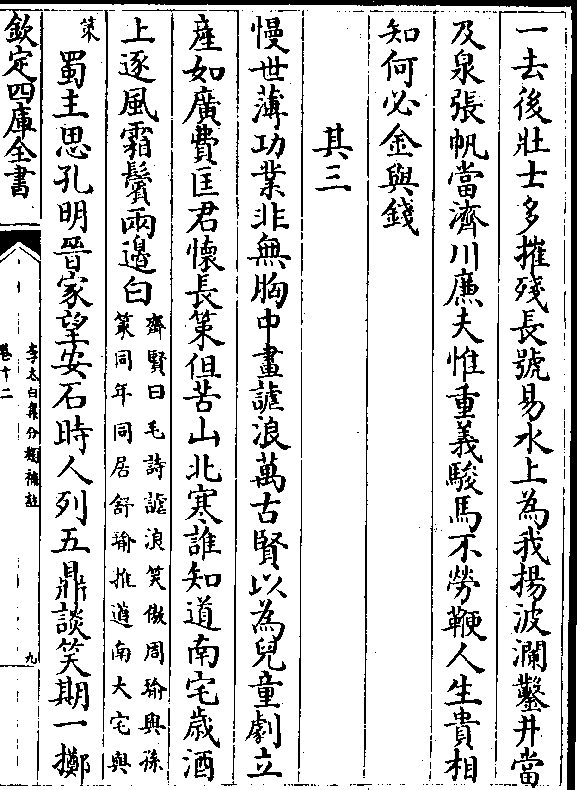 一去後壯士多摧殘長號易水上為我揚波瀾鑿井當
及泉張帆當濟川廉夫惟重義駿馬不勞鞭人生貴相
知何必金與錢
其三
慢世薄功業非無胸中畫謔浪萬古賢以為兒童劇立
産如廣費匡君懷長策但苦山北寒誰知道南宅歲酒
上逐風霜鬢兩邉白
齊賢曰毛詩謔浪笑傲周瑜與孫
策同年同居舒瑜推道南大宅與
策
蜀主思孔明晉家望安石時人列五鼎談笑期一擲
欽定四庫全書
李太白集分類補註
卷十二
九